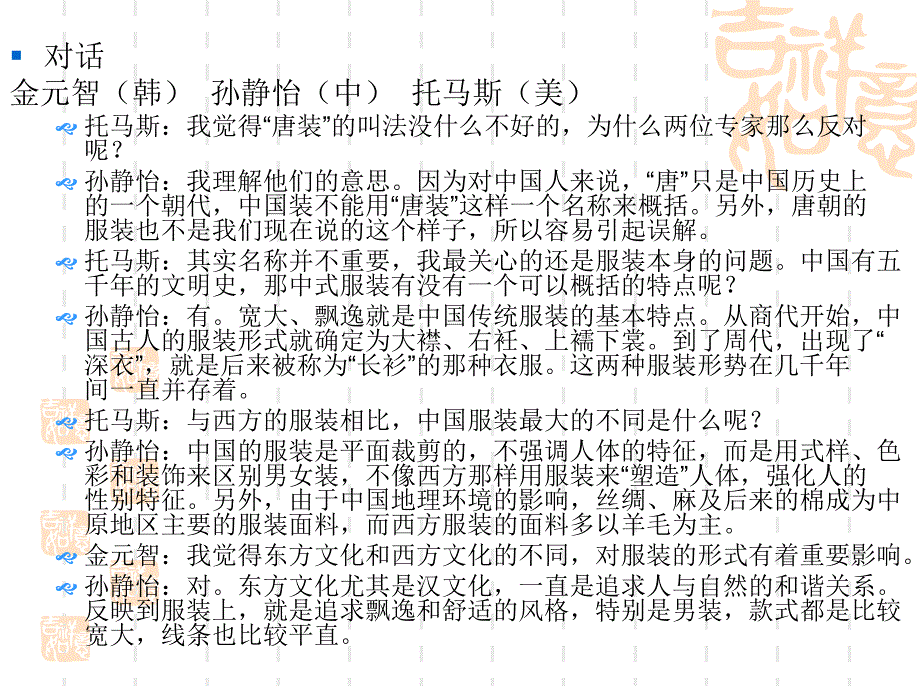 吉祥
如意
对话
金元智（韩） 孙静怡（中） 托马斯（美）
托马斯：我觉得“唐装”的叫法没什么不好的，为什么两位专家那么反对
呢？
孙静怡：我理解他们的意思。因为对中国人来说，“唐”只是中国历史上
的一个朝代，中国装不能用“唐装”这样一个名称来概括。另外，唐朝的
服装也不是我们现在说的这个样子，所以容易引起误解。
托马斯：其实名称并不重要，我最关心的还是服装本身的问题。中国有五
千年的文明史，那中式服装有没有一个可以概括的特点呢？
孙静怡：有。宽大、飘逸就是中国传统服装的基本特点。从商代开始，中
国古人的服装形式就确定为大襟、右衽、上襦下裳。到了周代，出现了“
深衣”，就是后来被称为“长衫”的那种衣服。这两种服装形势在几千年
间一直并存着。
托马斯：与西方的服装相比，中国服装最大的不同是什么呢？
孙静怡：中国的服装是平面裁剪的，不强调人体的特征，而是用式样、色
彩和装饰来区别男女装，不像西方那样用服装来“塑造”人体，强化人的
性别特征。另外，由于中国地理环境的影响，丝绸、麻及后来的棉成为中
原地区主要的服装面料，而西方服装的面料多以羊毛为主。
金元智：我觉得东方文化和西方文化的不同，对服装的形式有着重要影响。
孙静怡：对。东方文化尤其是汉文化，一直是追求人与自然的和谐关系。
反映到服装上，就是追求飘逸和舒适的风格，特别是男装，款式都是比较
宽大，线条也比较平直。